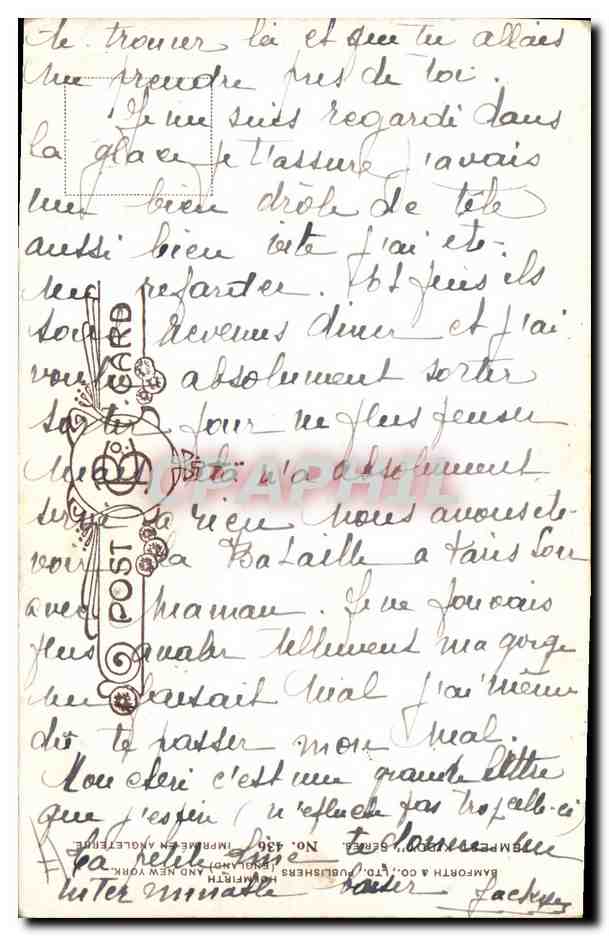 te trouver là et que tu allais
me prendre près de toi.
Je me suis regardé dans
la glace je t'assure j'avais
un bien drôle de tête
aussi bien vite j'ai été
me regarder. Et puis ils
sont revenus diner et j'ai
voulu absolument sortir
sortir pour ne plus penser
mais cela n'a absolument
servi à rien. Nous avons été
voir la Bataille a Paris Son
avec Maman. Je ne pouvais
plus avaler tellement ma gorge
me faisait mal j'ai même
dû te passer mon mal.
Mon cheri c'est une grande lettre
que j'espère (n'efface pas trop celle-ci)
Ta petite te donne un
interminable baiser Jackye
POST CARD
B & Co. LTD
CPAPHIL
"TEMPEST KIDDY" SERIES. No. 436 IMPRIMÉ EN ANGLETERRE
BAMFORTH & CO., LTD., PUBLISHERS
HOLMFIRTH (ENGLAND) AND NEW YORK.